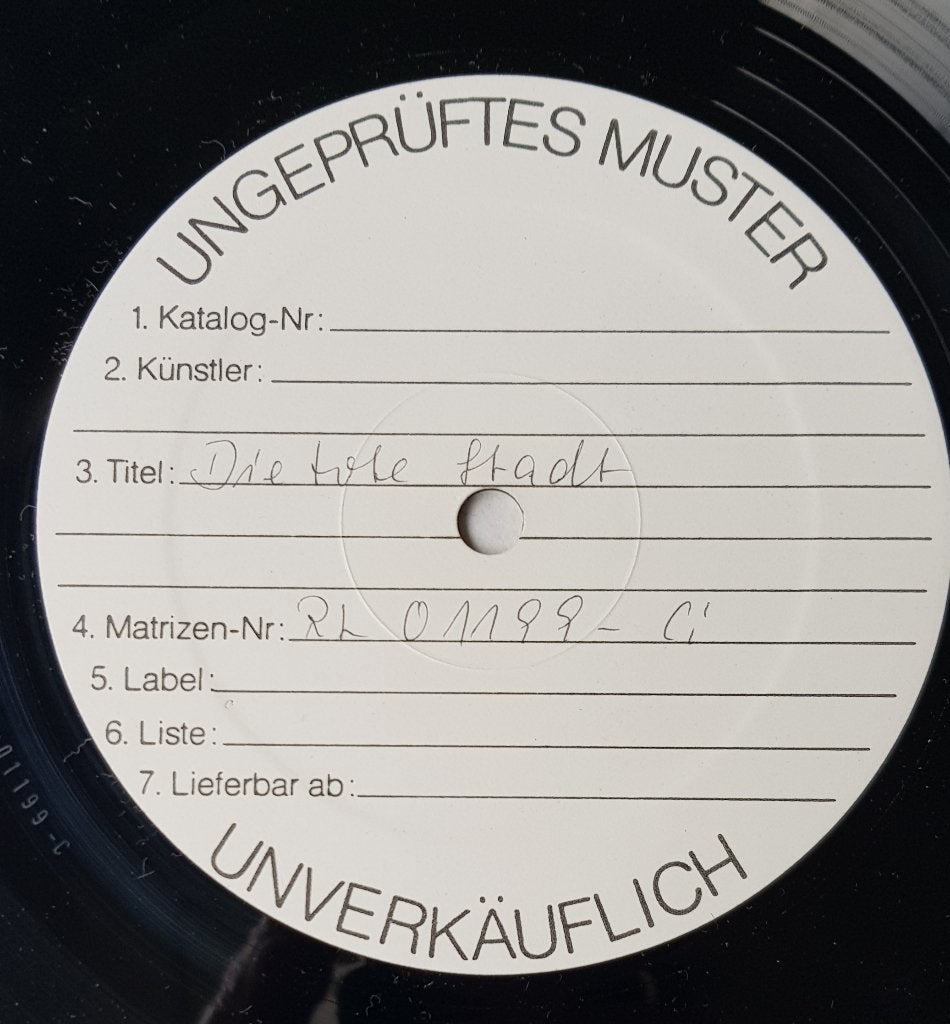 UNGEPRÜFTES MUSTER
1. Katalog-Nr:
2. Künstler:
3. Titel: Die tote Stadt
4. Matrizen-Nr: RL 01199 - C
5. Label:
6. Liste:
7. Lieferbar ab:
UNVERKÄUFLICH
01199-C